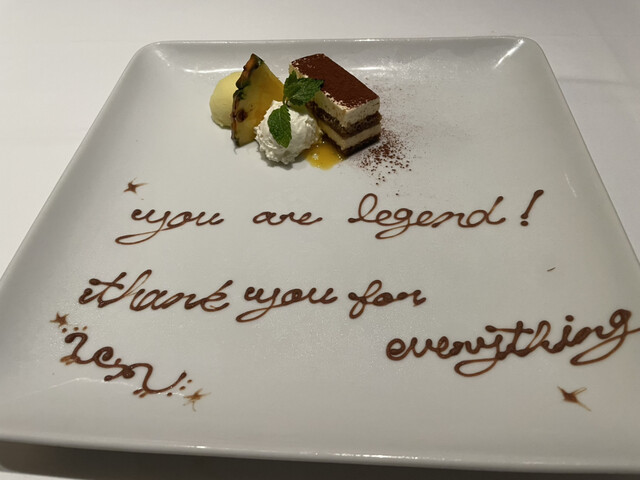 you are legend!
thank you for
everything